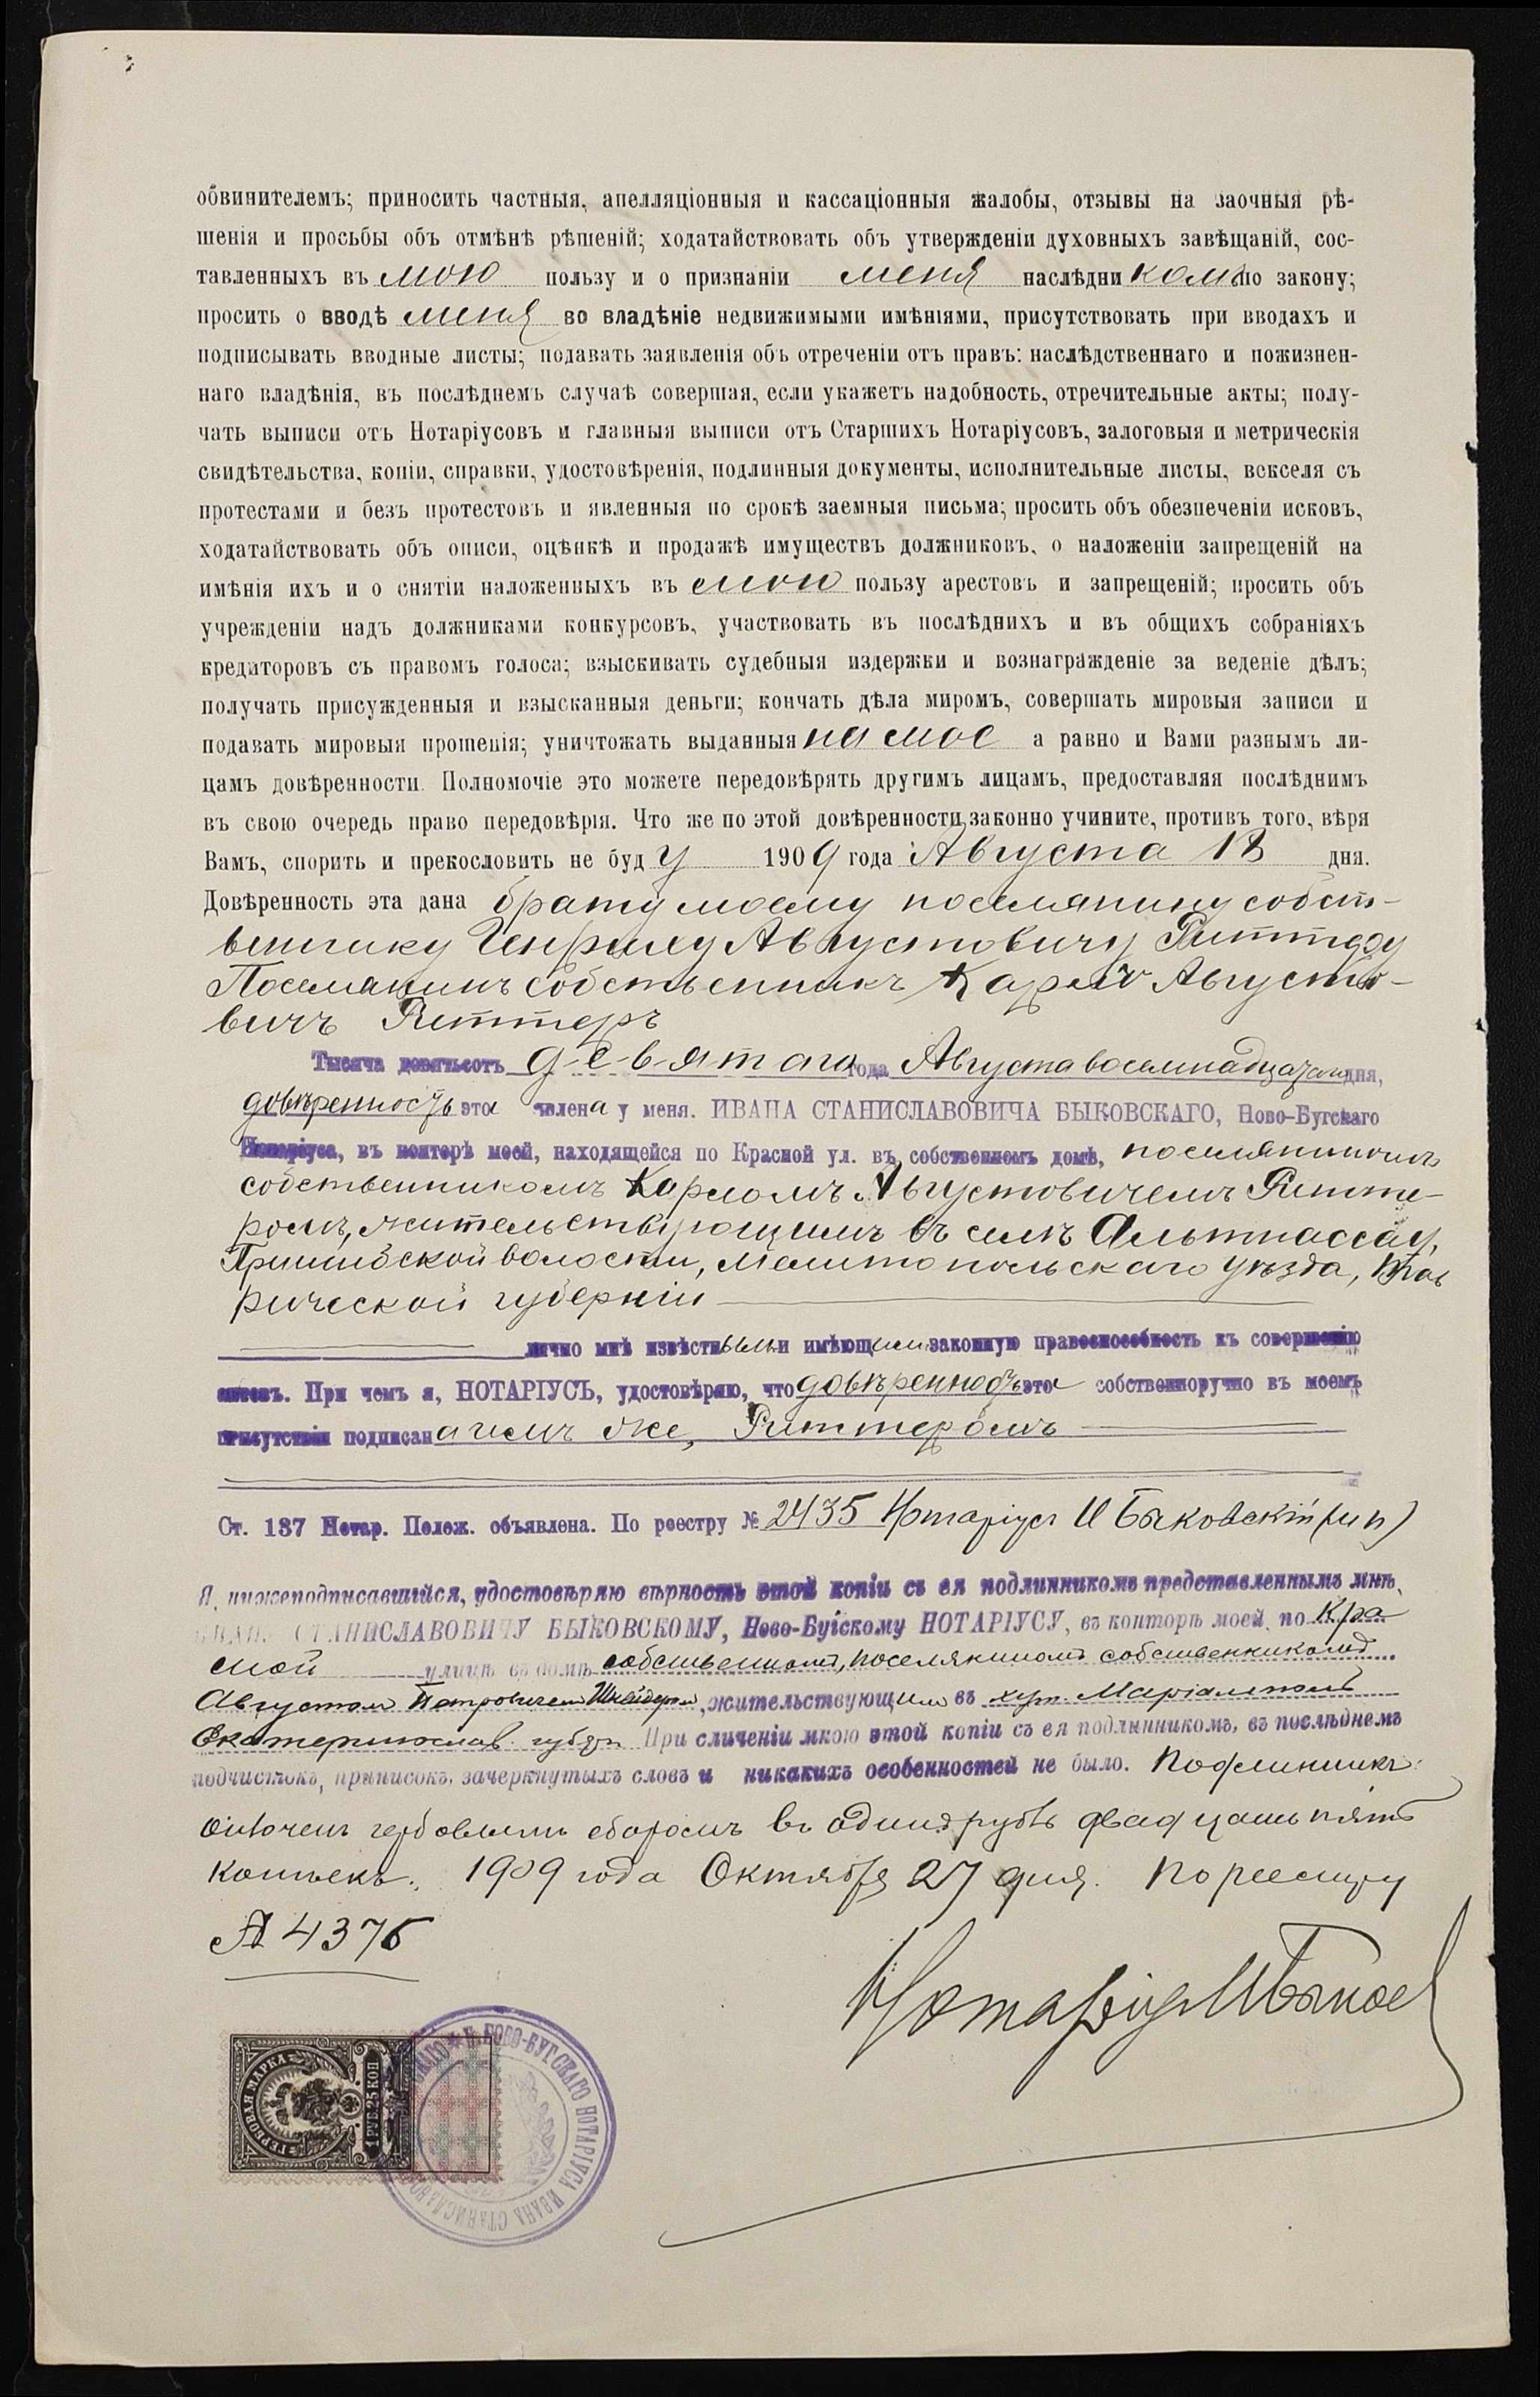 обвинителемъ; приносить частныя, апелляціонныя и кассаціонныя жалобы, отзывы на заочныя рѣ-
шенія и просьбы объ отмѣнѣ рѣшеній; ходатайствовать объ утвержденіи духовныхъ завѣщаній, сос-
тавленныхъ въ мою пользу и о признаніи меня наслѣдникомъ по закону;
просить о вводѣ меня во владѣніе недвижимыми имѣніями, присутствовать при вводахъ и
подписывать вводные листы; подавать заявленія объ отреченіи отъ правъ: наслѣдственнаго и пожизнен-
наго владѣнія, въ послѣднемъ случаѣ совершая, если укажетъ надобность, отречительные акты; полу-
чать выписи отъ Нотаріусовъ и главныя выписи отъ Старшихъ Нотаріусовъ, залоговыя и метрическія
свидѣтельства, копіи, справки, удостовѣренія, подлинныя документы, исполнительные листы, векселя съ
протестами и безъ протестовъ и явленныя по срокѣ заемныя письма; просить объ обезпеченіи исковъ,
ходатайствовать объ описи, оцѣнкѣ и продажѣ имуществъ должниковъ, о наложеніи запрещеній на
имѣнія ихъ и о снятіи наложенныхъ въ мою пользу арестовъ и запрещеній; просить объ
учрежденіи надъ должниками конкурсовъ, участвовать въ послѣднихъ и въ общихъ собраніяхъ
кредиторовъ съ правомъ голоса; взыскивать судебныя издержки и вознагражденіе за веденіе дѣлъ;
получать присужденныя и взысканныя деньги; кончать дѣла миромъ, совершать мировыя записи и
подавать мировыя прошенія; уничтожать выданныя на мое а равно и Вами разнымъ ли-
цамъ довѣренности. Полномочіе это можете передовѣрять другимъ лицамъ, предоставляя послѣднимъ
въ свою очередь право передовѣрія. Что же по этой довѣренности законно учините, противъ того, вѣря
Вамъ, спорить и прекословить не буду 1909 года Августа 18 дня.
Довѣренность эта дана брату моему поселянину собст-
веннику Генриху Августовичу Риттеру
Поселянинъ собственникъ Карлъ Августо-
вичъ Риттеръ
Тысяча девятьсотъ девятаго года Августа восемнадцатаго дня,
довѣренность эта явлена у меня. ИВАНА СТАНИСЛАВОВИЧА БЫКОВСКАГО, Ново-Бугскаго
Нотаріуса, въ конторѣ моей, находящейся по Красной ул. въ собственномъ домѣ, поселяниномъ
собственникомъ Карломъ Августовичемъ Ритте-
ромъ, жительствующимъ въ селѣ Альтнассау,
Пришибской волости, Мелитопольскаго уѣзда, Тав
рической губерніи
лично мнѣ извѣстнымъ и имѣющимъ законную правоспособность къ совершенію
актовъ. При чемъ я, НОТАРІУСЪ, удостовѣряю, что довѣренность эта собственноручно въ моемъ
присутствіи подписана имъ же, Риттеромъ
Ст. 137 Нотар. Полож. объявлена. По реестру № 2435 Нотаріусъ И Быковскій (м п)
Я, нижеподписавшійся, удостовѣряю вѣрность этой копіи съ ея подлинникомъ представленнымъ мнѣ,
ИВАНУ СТАНИСЛАВОВИЧУ БЫКОВСКОМУ, Ново-Бугскому НОТАРІУСУ, въ конторѣ моей, по Кра
сной улицѣ въ домѣ собственномъ, поселяниномъ собственникомъ
Августомъ Петровичемъ Шнейдеромъ, жительствующимъ въ хут. Маріамполь
Екатеринослав. губерн При сличеніи мною этой копіи съ ея подлинникомъ, въ послѣднемъ
подчистокъ, приписокъ, зачеркнутыхъ словъ и никакихъ особенностей не было. Подлинникъ
оплоченъ гербовымъ сборомъ въ одинъ рубль двадцать пять
копѣекъ. 1909 года Октября 27 дня. По реестру
№ 4376
Нотаріус И Быков
ГЕРБОВАЯ МАРКА
1 РУБ. 25 КОП
НОВО-БУГСКАГО НОТАРІУСА ИВАНА СТАНИСЛАВО